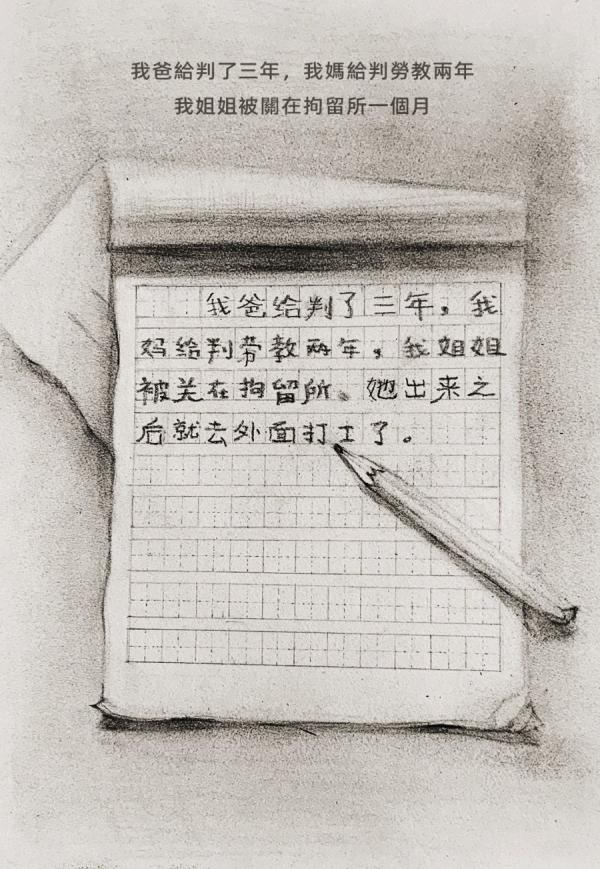 我爸給判了三年，我媽給判勞教兩年
我姐姐被關在拘留所一個月
我爸给判了三年，我
妈给判劳教两年，我姐姐
被关在拘留所。她出来之
后就去外面打工了。